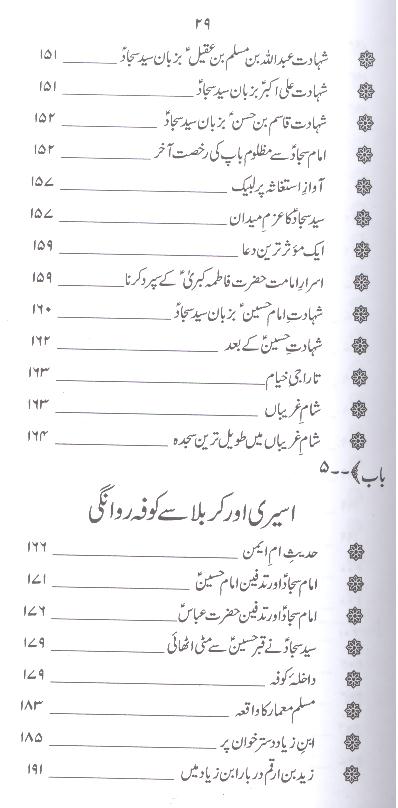 ۲۹
شہادت عبداللہ بن مسلم بن عقیلؑ بزبان سید سجادؑ ۱۵۱
شہادت علی اکبرؑ بزبان سید سجادؑ ۱۵۱
شہادت قاسم بن حسنؑ بزبان سید سجادؑ ۱۵۲
امام سجادؑ سے مظلوم باپ کی رخصت آخر ۱۵۲
آوازِ استغاثہ پر لبیک ۱۵۷
سید سجادؑ کا عزم میدان ۱۵۷
ایک مؤثر ترین دعا ۱۵۹
اسرارِ امامت حضرت فاطمہ کبریٰؑ کے سپرد کرنا ۱۵۹
شہادتِ امام حسینؑ بزبان سید سجادؑ ۱۶۰
شہادتِ حسینؑ کے بعد ۱۶۲
تاراجیٔ خیام ۱۶۳
شامِ غریباں ۱۶۳
شامِ غریباں میں طویل ترین سجدہ ۱۶۴
باب ۔۔ ۵
اسیری اور کربلا سے کوفہ روانگی
حدیثِ امِ ایمن ۱۶۶
امام سجادؑ اور تدفین امام حسینؑ ۱۷۱
امام سجادؑ اور تدفین حضرت عباسؑ ۱۷۶
سید سجادؑ نے قبر حسینؑ سے مٹی اٹھائی ۱۷۹
داخلۂ کوفہ ۱۷۹
مسلم معمار کا واقعہ ۱۸۳
ابنِ زیاد دسترخوان پر ۱۸۵
زید بن ارقم دربار ابنِ زیاد میں ۱۹۱